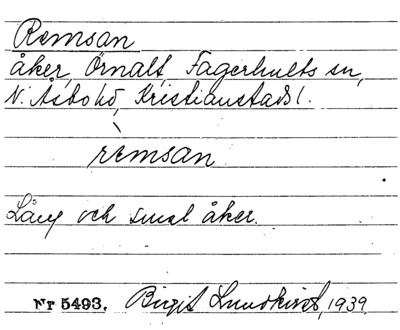 Remsan
åker, Örnalt, Fagerhults sn,
N. Åsbo hd, Kristianstads l.
rèmsan
Lång och smal åker.
Nr 5493. Birgit Lundkvist, 1939.